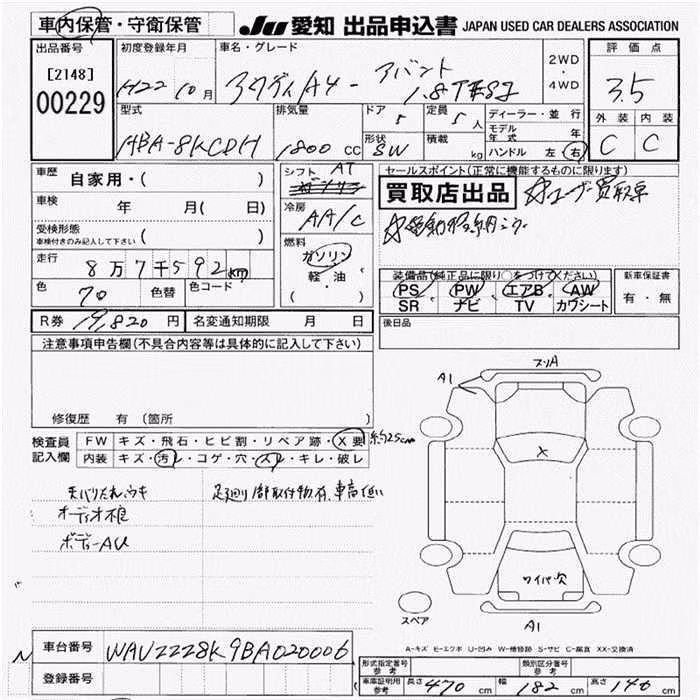 車内保管・守衛保管
JU 愛知 出品申込書 JAPAN USED CAR DEALERS ASSOCIATION
出品番号 初度登録年月 車名・グレード 2WD ・ 4WD 評価点
[2148] H22 10月 アウディA4- アバント 3.5
00229 型式 排気量 ドア 定員 ディーラー・並行 外装 内装
モデル年式 年
HBA-8KCDH 1800 cc 形状 SW 5人 積載 kg ハンドル 左 右 C C
車歴 自家用・( ) シフト AT セールスポイント(正常に機能するものに限ります)
買取店出品
車検 年 月( 日) 冷房 AA/C
受検形態 ( )
車検付きのみ記入して下さい
燃料 ガソリン 軽・油 ( )
装備品(純正品に限り○をつけてください) 新車保証書
走行 8万7千592km
PS PW エアB AW 有・無
色 70 色替 色コード
SR ナビ TV カワシート
R券 19,820円 名変通知期限 月 日 後日品
注意事項申告欄(不具合内容等は具体的に記入して下さい)
修復歴 有 (箇所 )
検査員 FW キズ・飛石・ヒビ割・リペア跡・X要 約25cm
記入欄 内装 キズ・汚レ・コゲ・穴・スレ・キレ・破レ
天バリたれ,ウキ 足廻り1部取付物有,車高低い
ボディーAU
A1
X
ワイパー欠
スペア A1
A-キズ E-エクボ U-凹み W-補修跡 S-サビ C-腐食 XX-交換済
車台番号 WAUZZZ8K9BA020006
登録番号
形式指定番号 参考 類別区分番号 参考
車庫証明用 参考 長さ 470 cm 幅 182 cm 高さ 140 cm